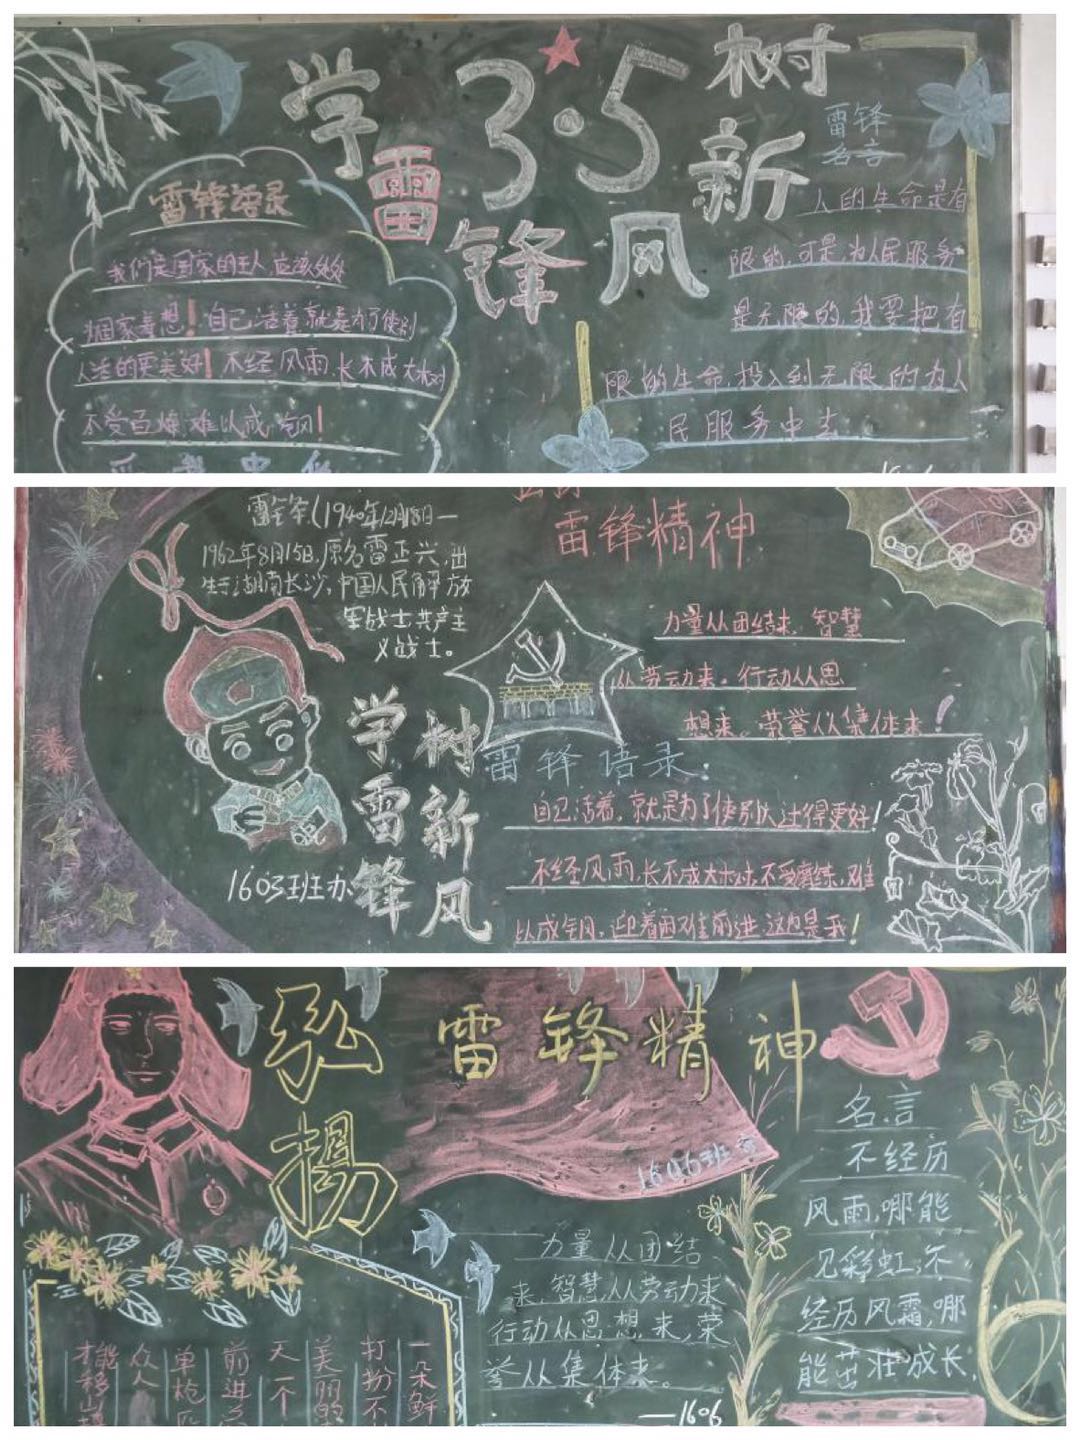 学
雷
锋
3·5
树
新
风
雷锋语录
我们是国家的主人,应该处处
为国家着想!自己活着就是为了使别
人活的更美好!不经风雨,长不成大树
不受百炼,难以成钢!
雷锋
名言
人的生命是有
限的,可是,为人民服务
是无限的,我要把有
限的生命,投入到无限的为人
民服务中去
雷锋(1940年12月18日—
1962年8月15日,原名雷正兴,出
生于湖南长沙,中国人民解放
军战士共产主
义战士。
学雷锋
树新风
1603班办
雷锋精神
力量从团结来,智慧
从劳动来。行动从思
想来。荣誉从集体来!
雷锋语录:
自己活着,就是为了使别人过得更好!
不经风雨,长不成大树,不受磨练,难
以成钢,迎着困难前进,这也是我!
弘
揚
雷锋精神
1606班
名言
不经历
风雨,哪能
见彩虹;不
经历风霜,哪
能茁壮成长,
力量从团结
来,智慧,从劳动来
行动从思想来,荣
誉从集体来。
——1606
一朵鲜
打扮不
美丽的
天一个
前进
单枪匹
众人
才能移山填